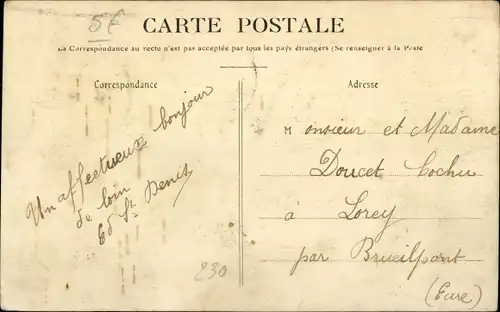 5€
CARTE POSTALE
La Correspondance au recto n'est pas acceptée par tous les pays étrangers (Se renseigner à la Poste
Correspondance
Un affectueux bonjour
de loin
Ed St Denis
230
Adresse
Monsieur et Madame
Doucet Cochu
à Lorey
par Brueilpont
(Eure)